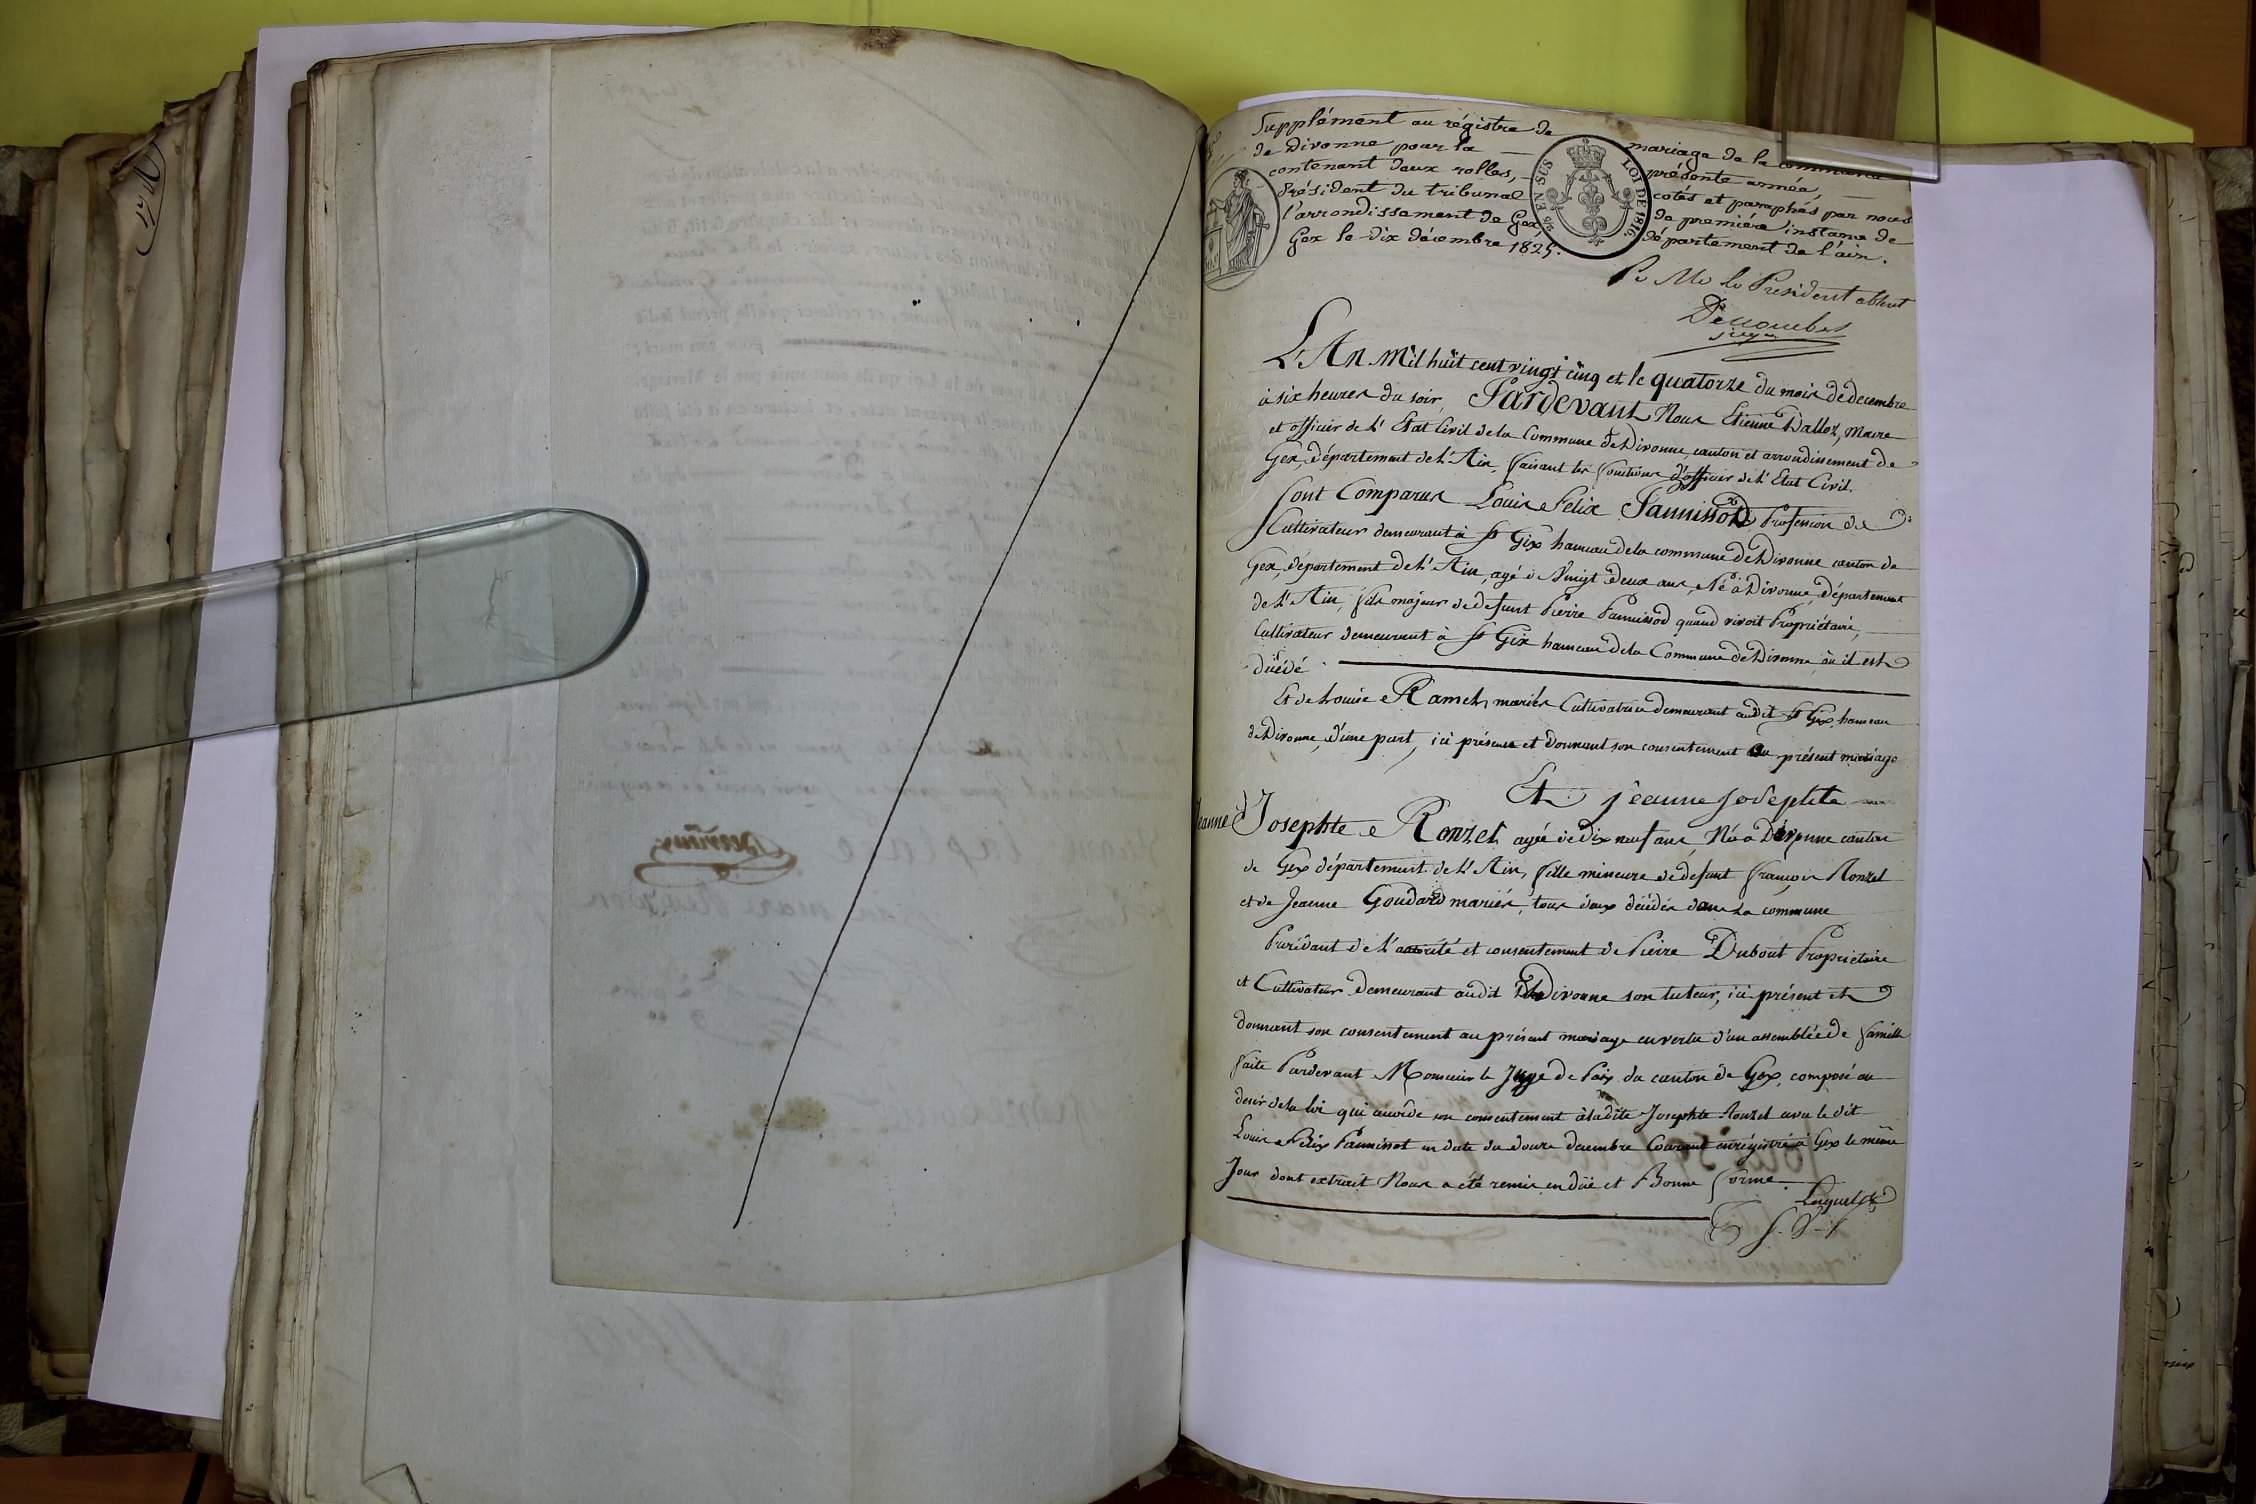 Supplément au régistre de mariage de la commune
de Divonne pour la présente année,
contenant deux rolles, cotés et paraphés par nous
Président du tribunal de première instance de
l'arrondissement de Gex, département de l'ain.
Gex le dix décembre 1825.
EN SUS
LOI DE 1816.
Pr Mr le Président absent
L'An Mil huit cent vingt cinq et le quatorze du mois de decembre
à six heures du soir, Pardevant Nous Etienne Dalloz, Maire
et officier de l'Etat Civil de la Commune de Divonne, canton et arrondissement de
Gex, département de l'Ain, faisant les fonctions d'officier de l'Etat Civil.
Sont Comparus Louis Felix Pannissod Profession de
Cultivateur demeurant à St Gix hameau de la commune de Divonne canton de
Gex, département de l'Ain, agé de Vingt deux ans, Né à Divonne, département
de l'Ain, fils majeur de defunt Pierre Pannissod quand vivoit Propriétaire,
Cultivateur demeurant à St Gix hameau de la Commune de Divonne où il est
décédé
Et de Louise Ramel, mariés Cultivatrice demeurant audit St Gix, hameau
de Divonne, d'une part, ici présente et donnant son consentement au présent mariage
Et jeanne josephte
Jeanne Josephte Ronzel agée de dix neuf ans, Née a Divonne canton
de Gex département de l'Ain, fille mineure de defunt françois Ronzel
et de Jeanne Goudard mariés, tous deux décédés dans la commune
Procédant de l'autorité et consentement de Pierre Dubout Propriétaire
et Cultivateur demeurant audit Divonne son tuteur, ici présent et
donnant son consentement au présent mariage en vertu d'un assemblée de famille
faite Pardevant Monsieur le Juge de Paix du canton de Gex, composé au
desir de la loi qui accorde son consentement à ladite Josephte Ronzel avec le dit
Louis Felix Pannissod en date du douze decembre Courant enrégistré à Gex le même
Jour dont extrait Nous a été remis en düe et Bonne forme.